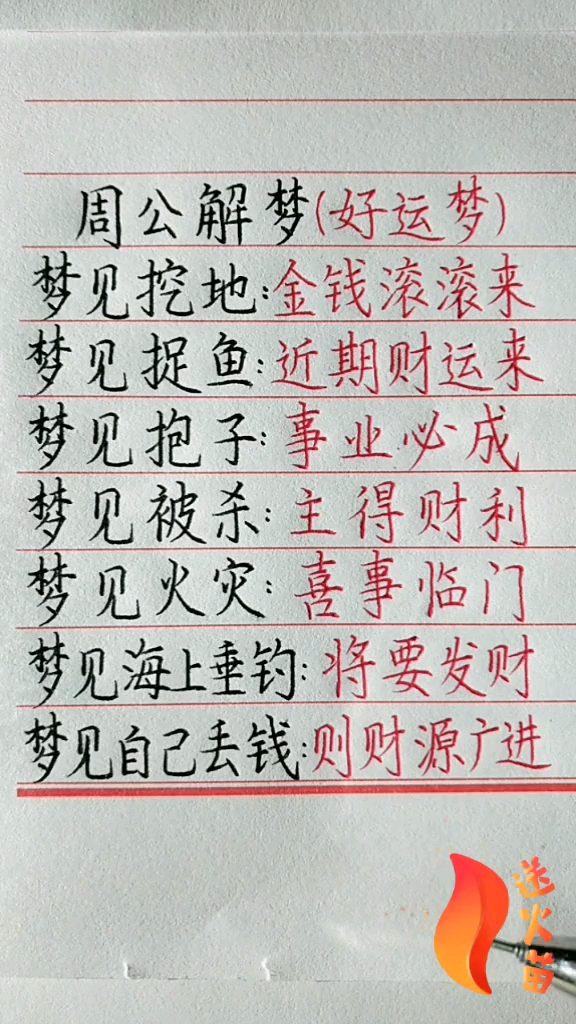 周公解梦(好运梦)
梦见挖地:金钱滚滚来
梦见捉鱼:近期财运来
梦见抱子:事业必成
梦见被杀:主得财利
梦见火灾:喜事临门
梦见海上垂钓:将要发财
梦见自己丢钱:则财源广进
送火苗